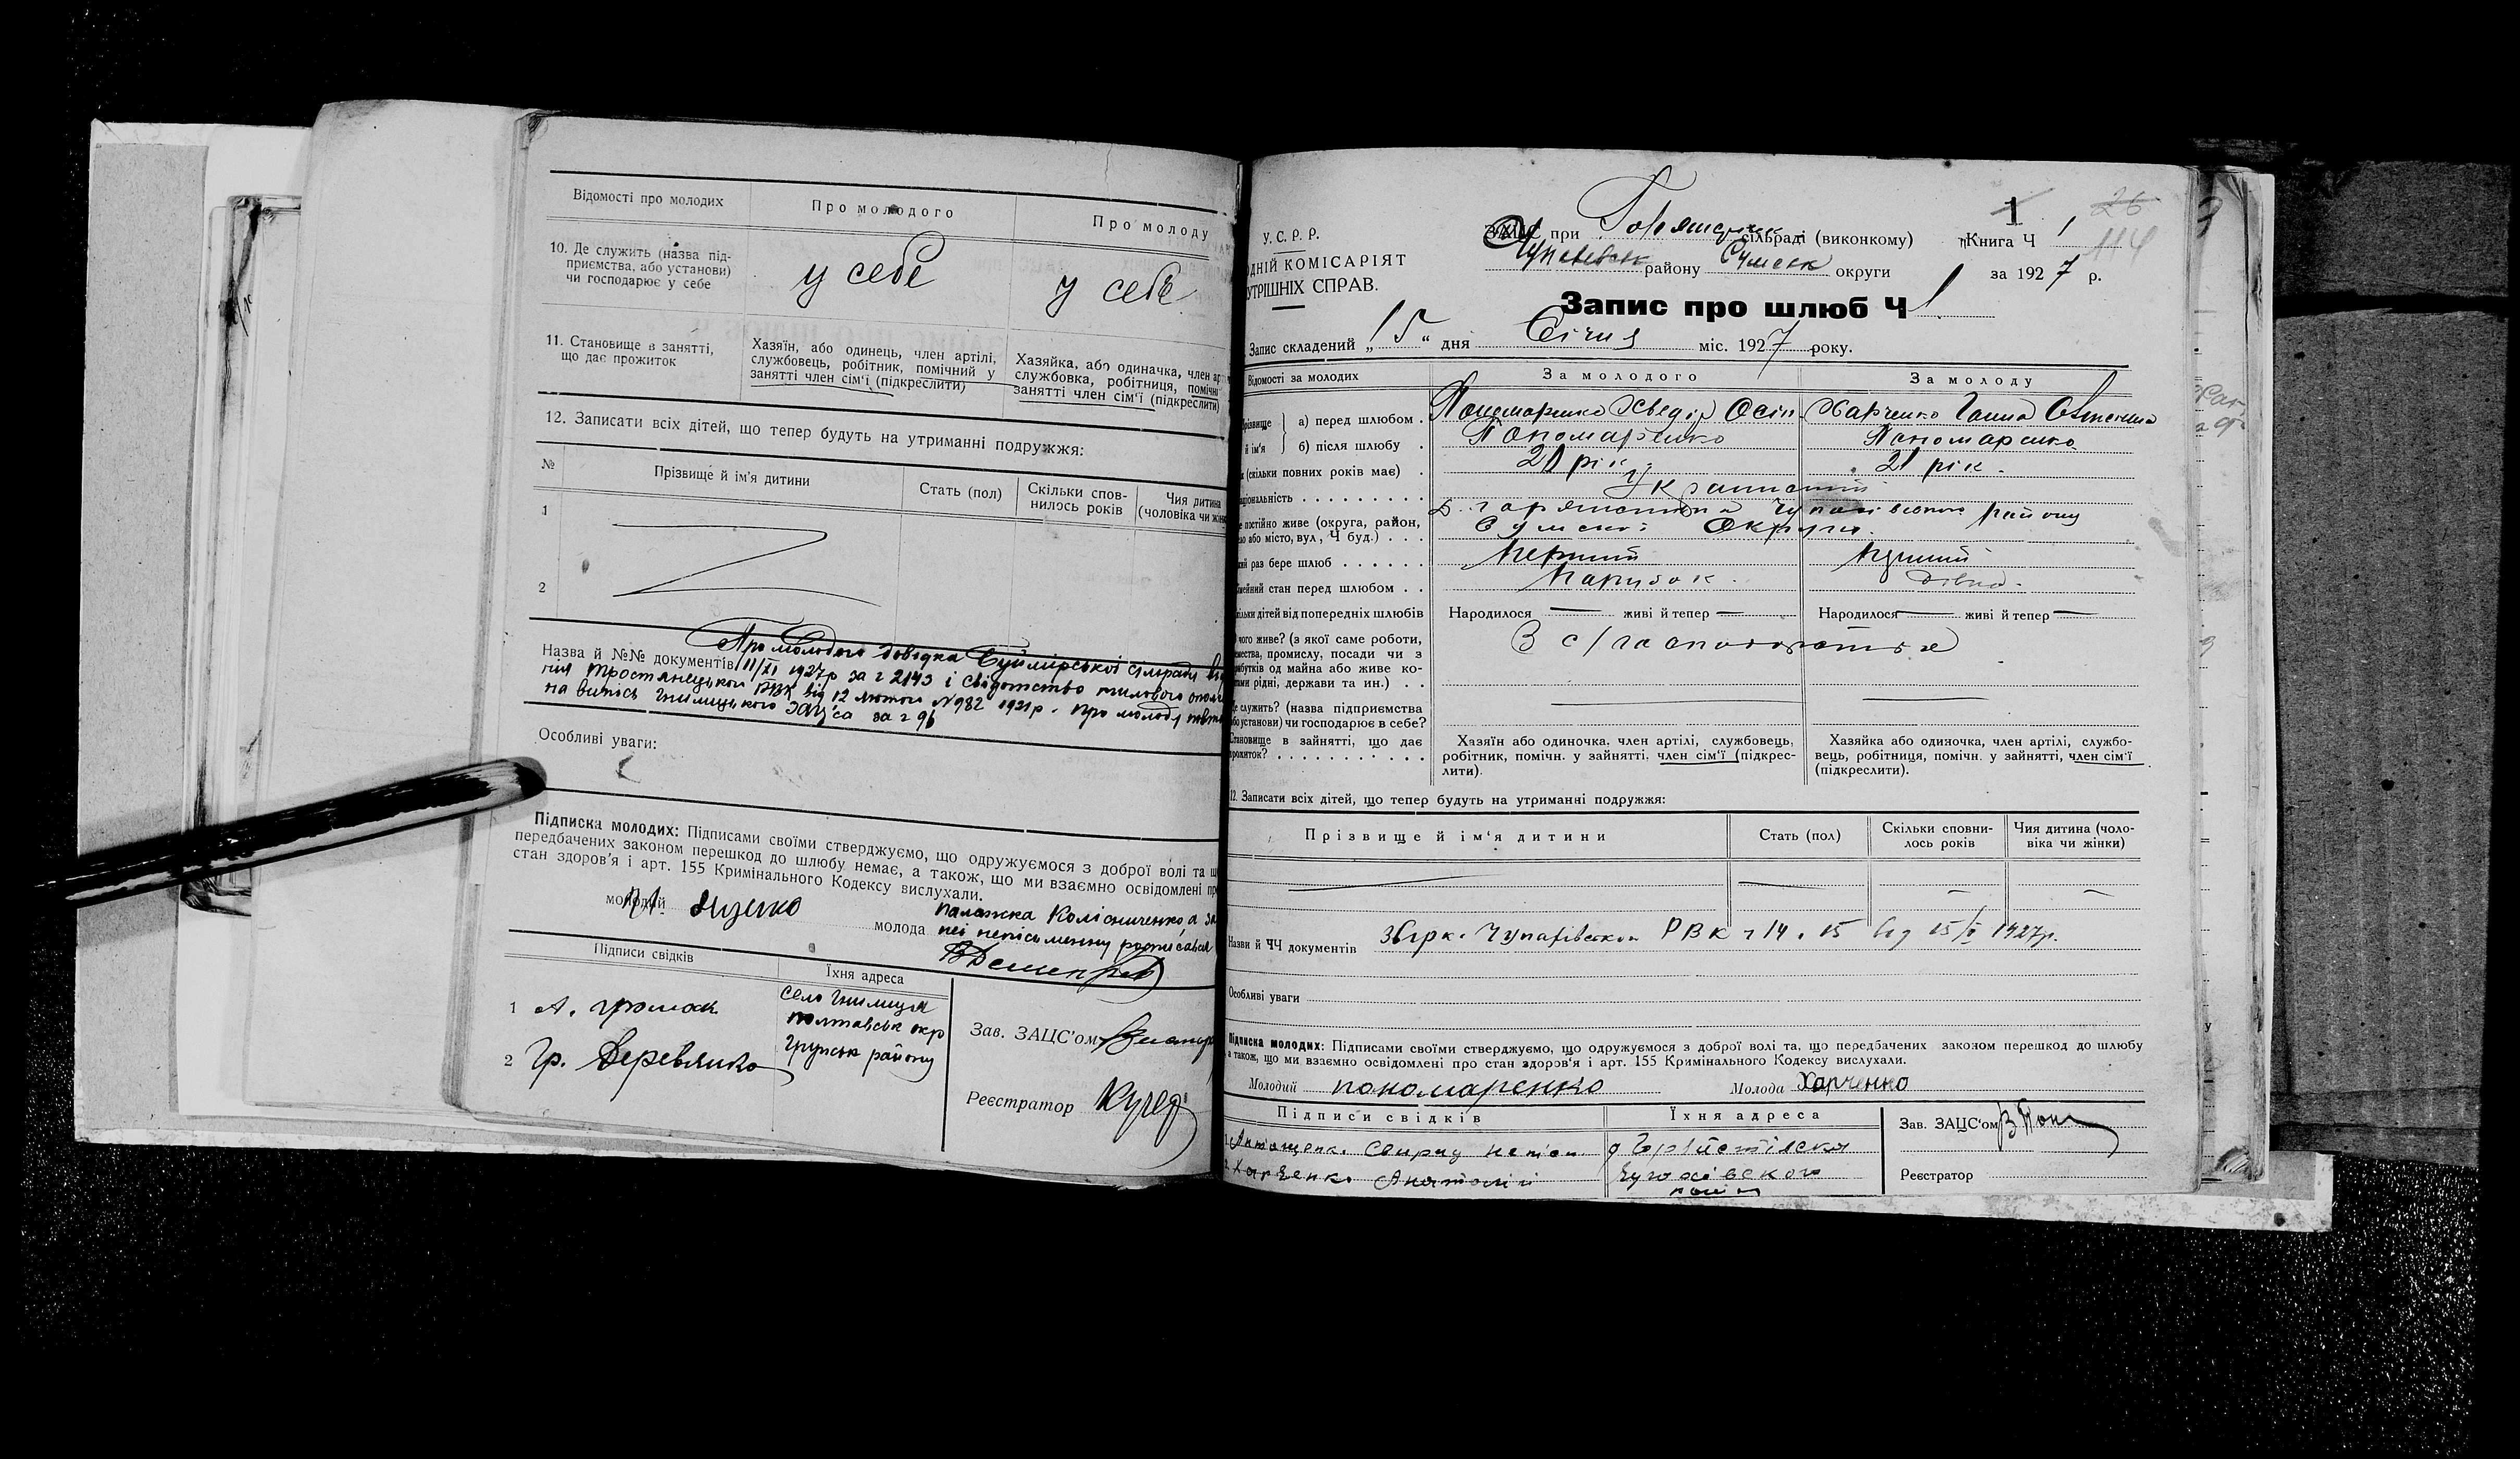 Відомості про молодих
Про молодого
Про молоду
10. Де служить (назва під-
приємства, або установи)
чи господарює у себе
у себе
у себе
11. Становище в занятті,
що дає прожиток
Хазяїн, або одинець, член артілі,
службовець, робітник, помічний у
занятті член сім'ї (підкреслити)
Хазяйка, або одиначка, член
службовка, робітниця, помічн
занятті член сім'ї (підкреслити)
12. Записати всіх дітей, що тепер будуть на утриманні подружжя:
№
Прізвище й ім'я дитини
Стать (пол)
Скільки спов-
нилось років
Чия дитина
(чоловіка чи
1
2
Назва й №№ документів
Про молодого довідка Буймірської сільради
11/XI 1927р за ч 2143 і свідотство тилового
Тростянецьким РВК від 12 лютого №982 1921р. про молоду
на випись Гнилицького Зацса за ч 96
Особливі уваги:
Підписка молодих: Підписами своїми стверджуємо, що одружуємося з доброї волі та
передбачених законом перешкод до шлюбу немає, а також, що ми взаємно освідомлені
стан здоров'я і арт. 155 Кримінального Кодексу вислухали.
молодий
молода
палажка Колісниченко, а за
неї неписьменну росписався
Підписи свідків
Їхня адреса
1 А.
село Гнилиця
полтавськ окр
Грунськ району
2 Гр. Деревянко
Зав. ЗАЦС'ом
Реєстратор Кучер
У.С.Р.Р.
КОМІСАРІЯТ
СПРАВ.
ЗАЦС при сільраді (виконкому)
району Сумськ округи
Книга Ч 1
за 1927 р.
1
26
114
Запис про шлюб Ч 1
Запис складений „15“ дня Січня міс. 1927 року.
Відомості за молодих
За молодого
За молоду
а) перед шлюбом
Пономаренко Хведір Осіп.
Харченко Ганна
й ім'я б) після шлюбу
Пономаренко
Пономаренко
(скільки повних років має)
21 рік
21 рік.
постійно живе (округа, район,
або місто, вул, Ч буд.)
району
Сумської Округи.
раз бере шлюб
перший
перший
стан перед шлюбом
парубок
дівка
дітей від попередніх шлюбів
Народилося — живі й тепер —
Народилося — живі й тепер —
чого живе? (з якої саме роботи,
промислу, посади чи з
од майна або живе ко-
рідні, держави та ин.)
В с/господарстві
служить? (назва підприємства
установи) чи господарює в себе?
Становище в зайнятті, що дає
прожиток?
Хазяїн або одиночка, член артілі, службовець,
робітник, помічн. у зайнятті, член сім'ї (підкрес-
лити).
Хазяйка або одиночка, член артілі, службо-
вець, робітниця, помічн. у зайнятті, член сім'ї
(підкреслити).
12. Записати всіх дітей, що тепер будуть на утриманні подружжя:
Прізвище й ім'я дитини
Стать (пол)
Скільки сповни-
лось років
Чия дитина (чоло-
віка чи жінки)
Назви й ЧЧ документів
Чупахівськой РВК ч 14. 15 від 15/I 1927р.
Особливі уваги
Підписка молодих: Підписами своїми стверджуємо, що одружуємося з доброї волі та, що передбачених законом перешкод до шлюбу
а також, що ми взаємно освідомлені про стан здоров'я і арт. 155 Кримінального Кодексу вислухали.
Молодий пономаренко
Молода Харченко
Підписи свідків
Їхня адреса
Зав. ЗАЦС'ом
Свирид
2. Харченко Анатолій
Реєстратор